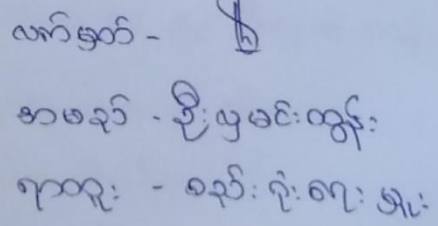 လက်မှတ် -
အမည် - ဦးယုမင်းထွန်း
ရာထူး - စည်းရုံးရေးမှူး